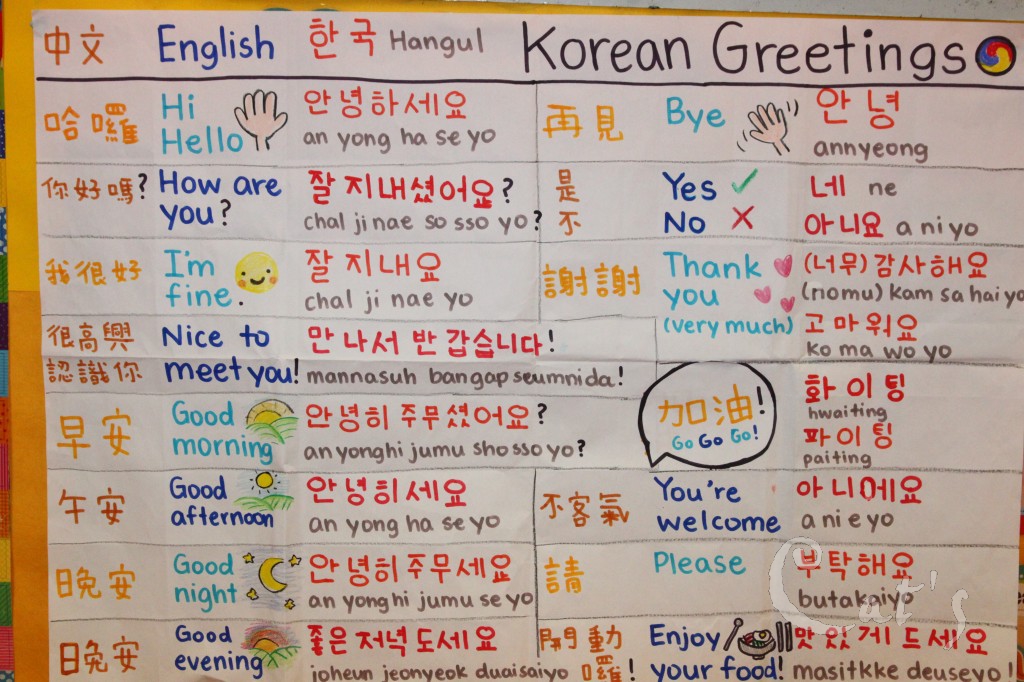 中文 English 한국 Hangul Korean Greetings
哈囉 Hi Hello 안녕하세요
an yong ha se yo
再見 Bye 안녕
annyeong
你好嗎? How are you? 잘 지내셨어요?
chal ji nae so sso yo?
是 Yes 네 ne
不 No 아니요 a ni yo
我很好 I'm fine. 잘 지내요
chal ji nae yo
謝謝 Thank you (very much) (너무) 감사해요
(nomu) kam sa hai yo
고마워요
ko ma wo yo
很高興 Nice to 만나서 반갑습니다!
認識你 meet you! mannasuh bangapseumnida!
加油! Go Go Go! 화이팅
hwaiting
파이팅
paiting
早安 Good morning 안녕히 주무셨어요?
an yonghi jumu sho sso yo?
午安 Good afternoon 안녕히세요
an yong ha se yo
不客氣 You're welcome 아니에요
a ni e yo
晚安 Good night 안녕히 주무세요
an yonghi jumu se yo
請 Please 부탁해요
butakaiyo
晚安 Good evening 좋은 저녁 도세요
joheun jeonyeok duaisaiyo
開動囉! Enjoy your food! 맛있게 드세요
masitkke deuseyo!
Cat's